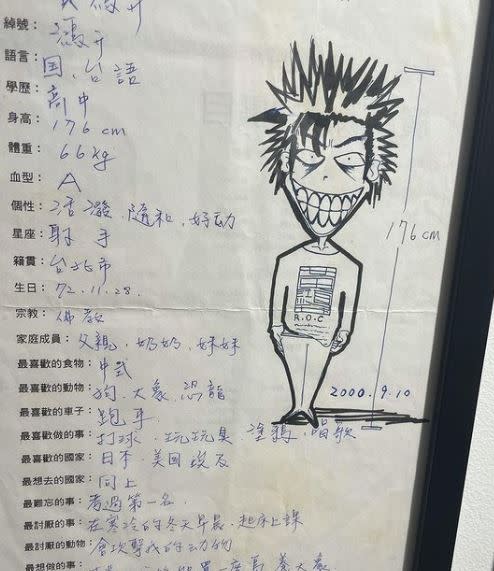 綽號：馮开
語言：国、台語
學歷：高中
身高：176 cm
體重：66 kg
血型：A
個性：活潑、隨和、好动
星座：射手
籍貫：台北市
生日：72.11.28.
宗教：佛教
家庭成員：父親、奶奶、妹妹
最喜歡的食物：中式
最喜歡的動物：狗、大象、恐龍
最喜歡的車子：跑車
最喜歡做的事：打球、玩玩具、塗鴉、唱歌
最喜歡的國家：日本、美國 埃及
最想去的國家：同上
最難忘的事：考過第一名
最討厭的事：在寒冷的冬天早晨、起床上課
最討厭的動物：會攻擊我的动物
最想做的事：
176 cm
R.O.C
2000.9.10